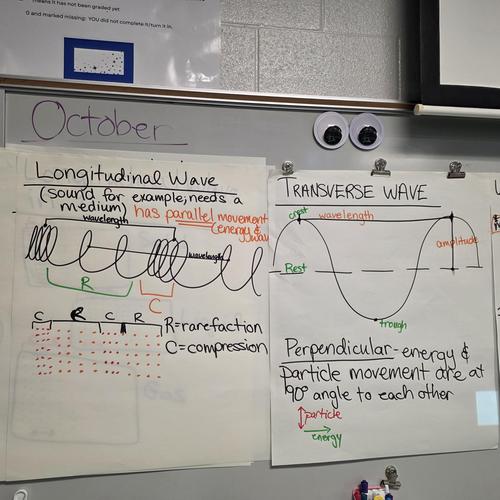 means it has not been graded yet
0 and marked missing: YOU did not complete it/turn it in.
October
Longitudinal Wave
(sound for example; needs a
medium) has parallel movement
wavelength
(energy &
wavelength
R
C
C R C R
R=rarefaction
C=compression
Gas
TRANSVERSE WAVE
crest
wavelength
amplitude
Rest
trough
Perpendicular-energy &
particle movement are at
90° angle to each other
particle
energy